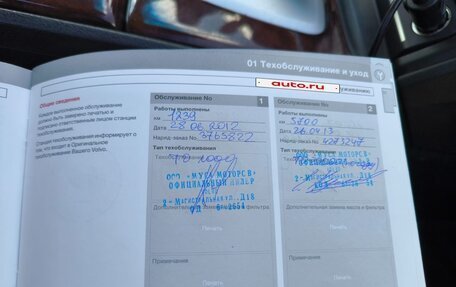 01 Техобслуживание и уход
auto.ru
Общие сведения
Каждое выполненное обслуживание
должно быть заверено печатью и
подписано ответственным лицом станции
техобслуживания.
Станция техобслуживания информирует о
том, что входит в Оригинальное
техобслуживание Вашего Volvo.
Обслуживание No 1
Работы выполнены
км 1239
Дата 28.06.2012
Наряд-заказ No. 3765822
Тип техобслуживания
ООО "МУСА МОТОРС В"
ОФИЦИАЛЬНЫЙ ДИЛЕР
2-Магистральная ул., Д18
Печать
Примечание
Обслуживание No 2
Работы выполнены
км
Дата 26.04.13
Наряд-заказ No. 4273247
Тип техобслуживания
ООО "МУСА МОТОРС В"
2-Магистральная ул., Д18
Дополнительная замена масла и фильтра
Печать
Примечание